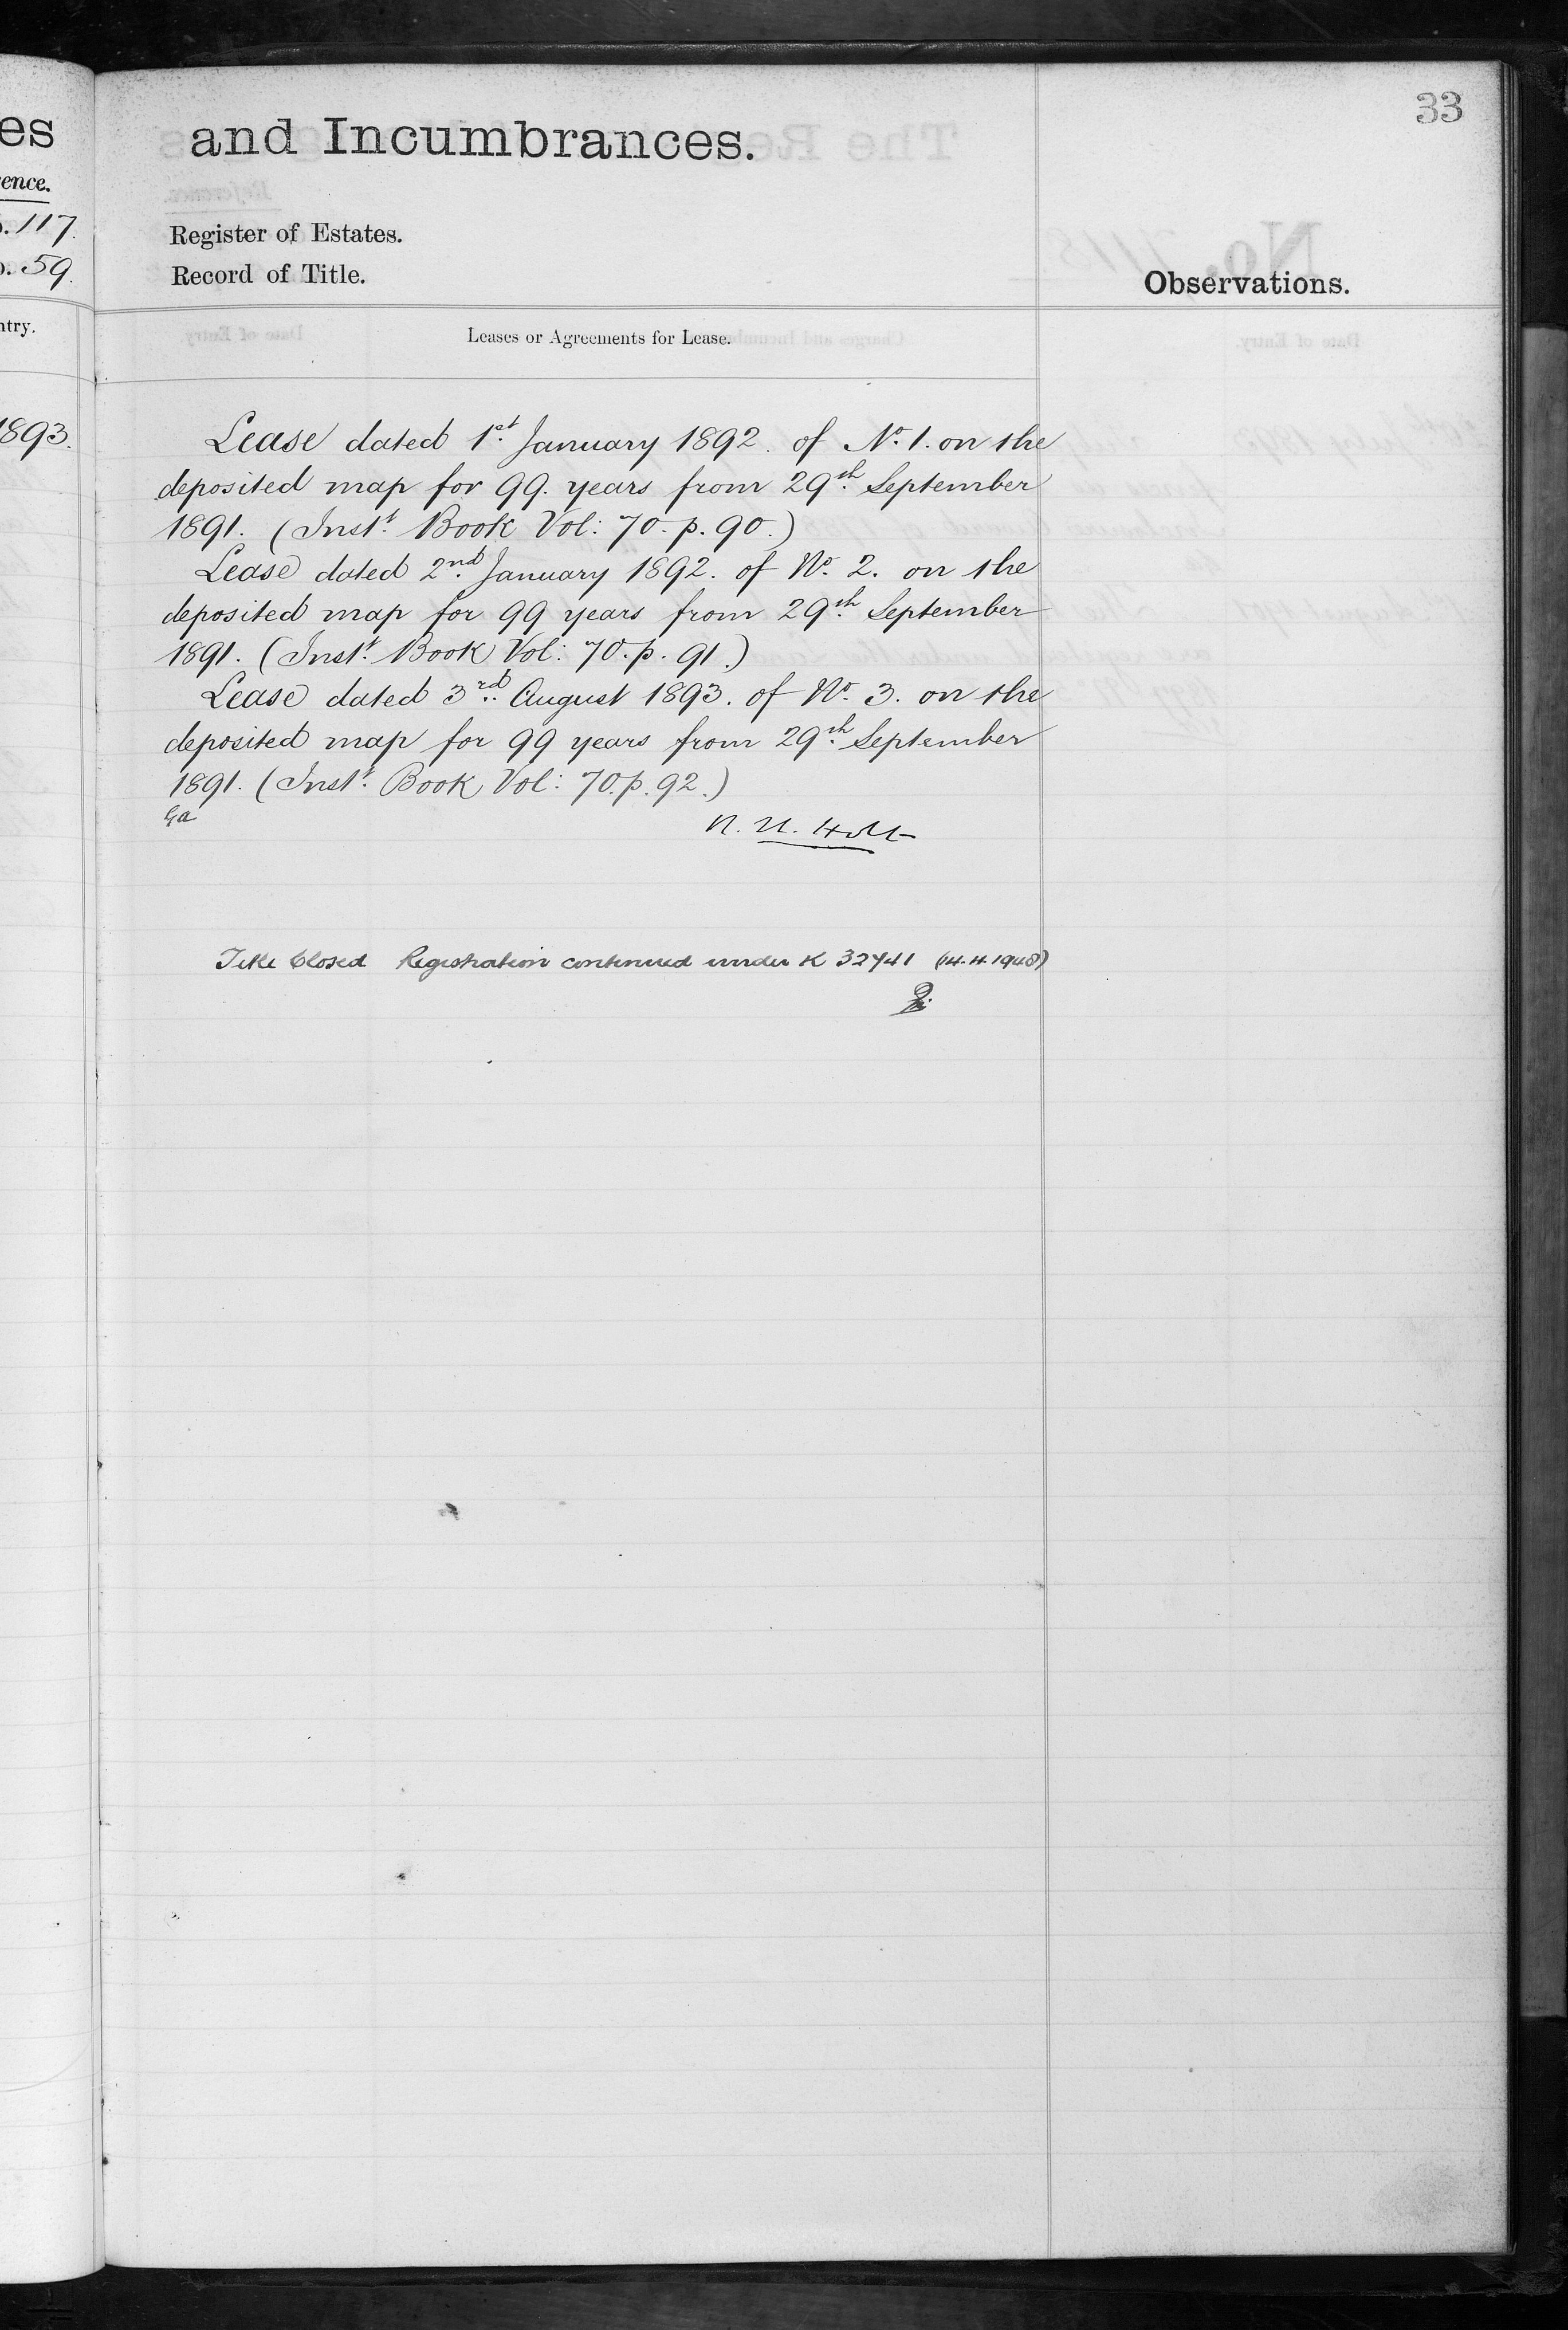 33
es
ence.
117.
59.
ntry.
1893.
and Incumbrances.
Register of Estates.
Record of Title.
Observations.
Leases or Agreements for Lease.
Lease dated 1st January 1892. of No. 1. on the
deposited map for 99. years from 29th September
1891. (Inst. Book Vol: 70. p. 90.)
Lease dated 2nd January 1892. of No. 2. on the
deposited map for 99 years from 29th September
1891. (Inst. Book Vol: 70. p. 91.)
Lease dated 3rd August 1893. of No. 3. on the
deposited map for 99 years from 29th September
1891. (Inst. Book Vol: 70. p. 92.)
Title Closed Registration continued under K 32741 (14.4.1948)